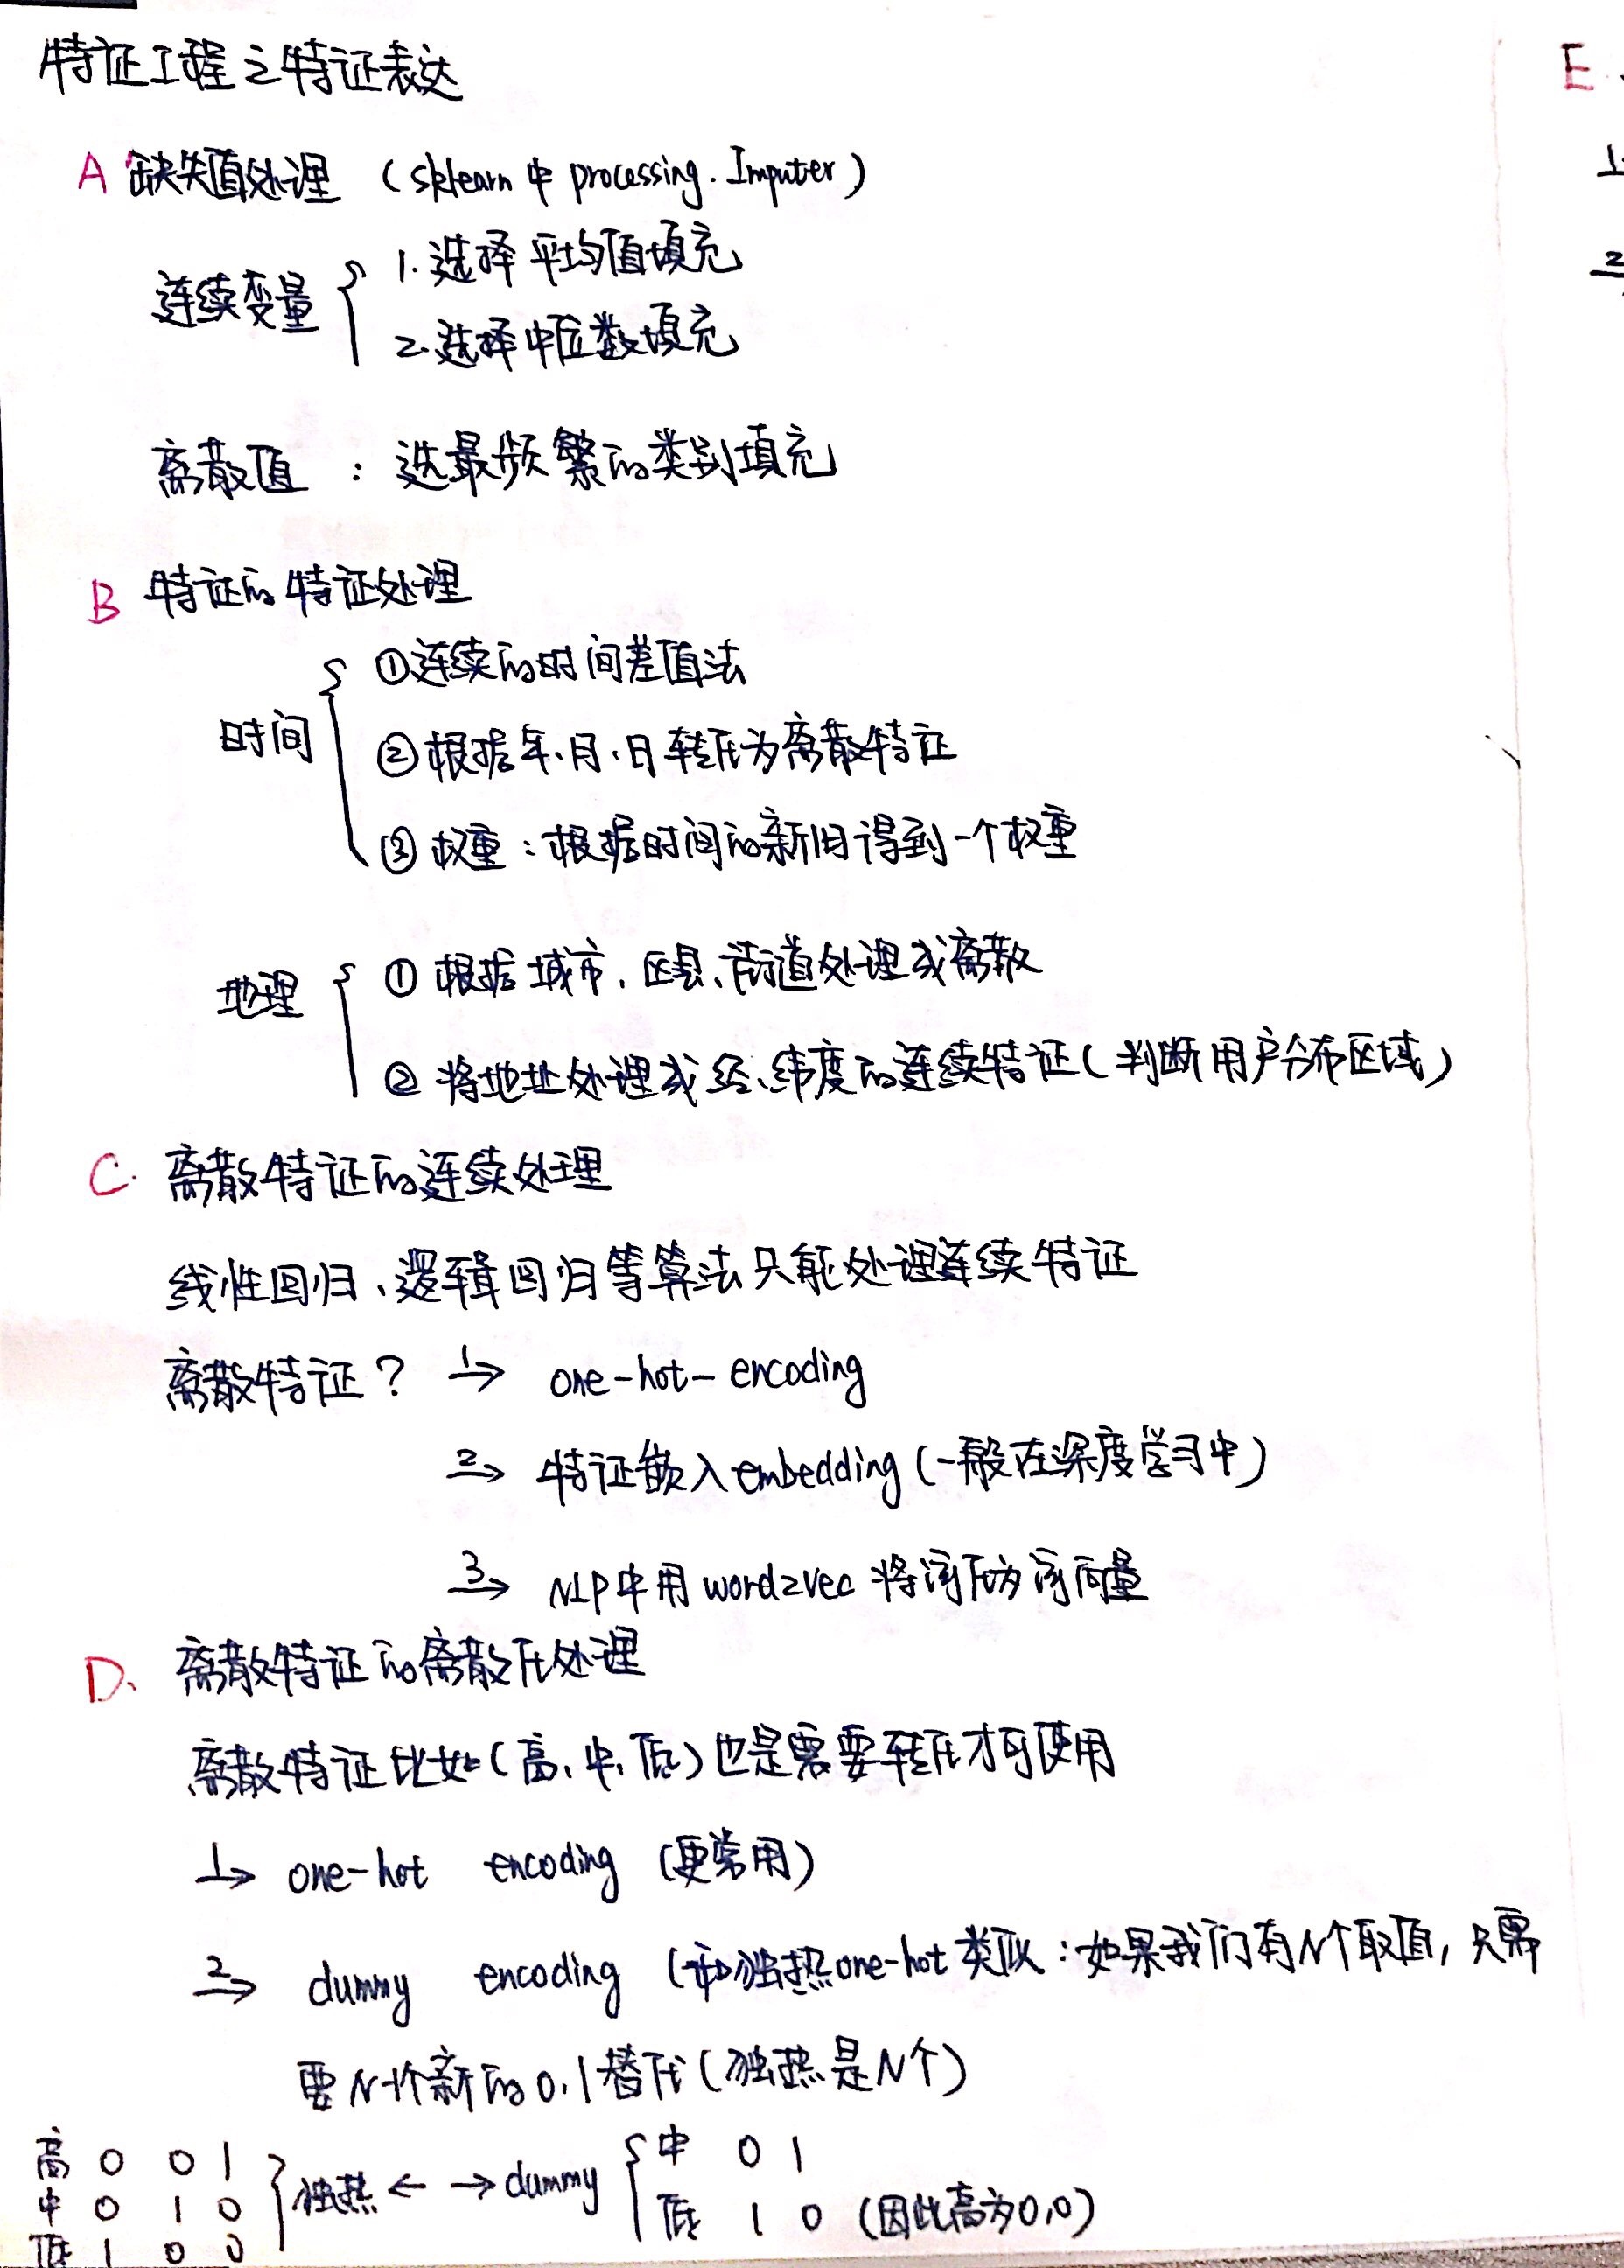 特征工程之特征表达
A 缺失值处理 (sklearn中 processing.Imputer)
连续变量 { 1.选择平均值填充
2.选择中位数填充
离散值 : 选最频繁的类别填充
B 特征的特征处理
时间 { ①连续的时间差值法
②根据年、月、日转化为离散特征
③权重:根据时间的新旧得到一个权重
地理 { ①根据城市、区县、街道处理成离散
②将地址处理成经、纬度的连续特征(判断用户分布区域)
C. 离散特征的连续处理
线性回归、逻辑回归等算法只能处理连续特征
离散特征? 1→ one-hot-encoding
2→ 特征嵌入embedding(一般在深度学习中)
3→ NLP中用word2vec 将词化为词向量
D、离散特征的离散化处理
离散特征比如(高、中、低)也是需要转化才可使用
1→ one-hot encoding (更常用)
2→ dummy encoding (和独热one-hot类似:如果我们有N个取值,只需
要N-1个新的0,1替代(独热是N个)
高 0 0 1
中 0 1 0 } 独热 ← → dummy { 中 0 1
低 1 0 0 低 1 0 (因此高为0,0)
E.
1
2